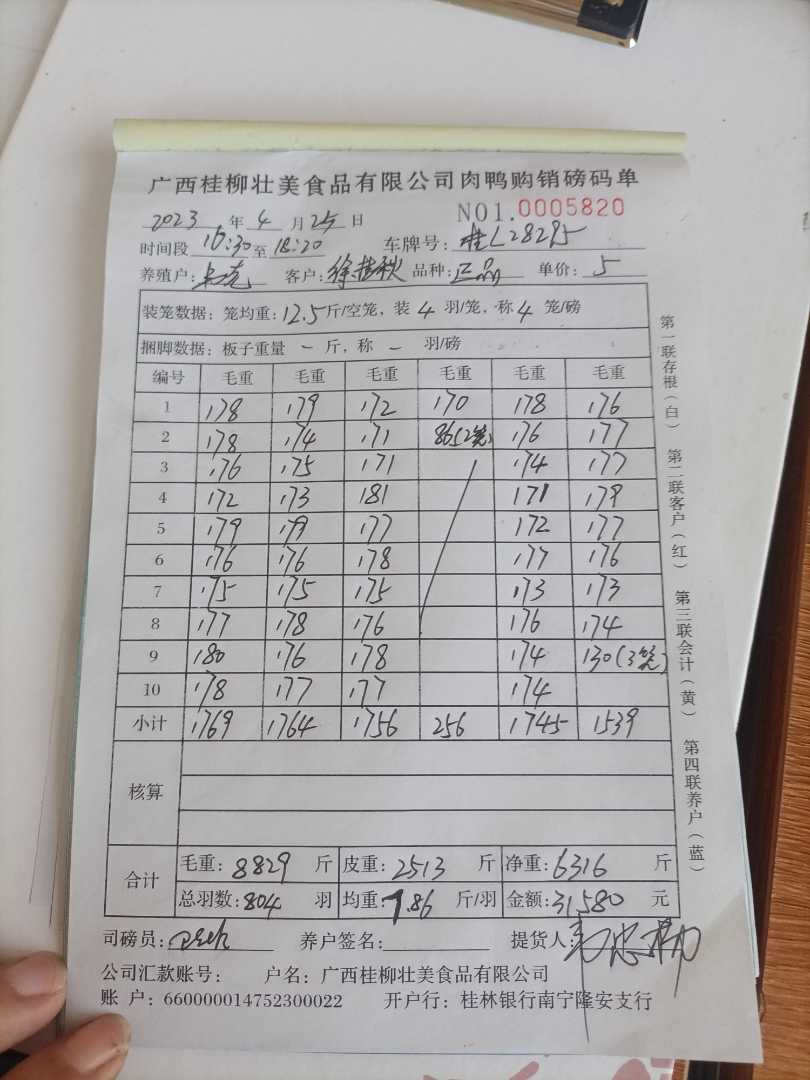 广西桂柳壮美食品有限公司肉鸭购销磅码单
2023 年 4 月 25 日 NO1.0005820
时间段 16:30 至 18:20 车牌号: 桂L28295
养殖户: 客户: 徐桂秋 品种: 正品 单价: 5
装笼数据: 笼均重: 12.5 斤/空笼, 装 4 羽/笼, 称 4 笼/磅
捆脚数据: 板子重量 一 斤, 称 一 羽/磅
编号 毛重 毛重 毛重 毛重 毛重 毛重
1 178 179 172 170 178 176
2 178 174 171 86(2笼) 176 177
3 176 175 171 174 177
4 172 173 181 171 179
5 179 179 177 172 177
6 176 176 178 177 176
7 175 175 175 173 173
8 177 178 176 176 174
9 180 176 178 174 130(3笼)
10 178 177 177 174
小计 1769 1764 1756 256 1745 1539
核算
合计 毛重: 8829 斤 皮重: 2513 斤 净重: 6316 斤
总羽数: 804 羽 均重: 7.86 斤/羽 金额: 31580 元
司磅员: 养户签名: 提货人:
公司汇款账号: 户名: 广西桂柳壮美食品有限公司
账 户: 660000014752300022 开户行: 桂林银行南宁隆安支行
第一联存根(白) 第二联客户(红) 第三联会计(黄) 第四联养户(蓝)